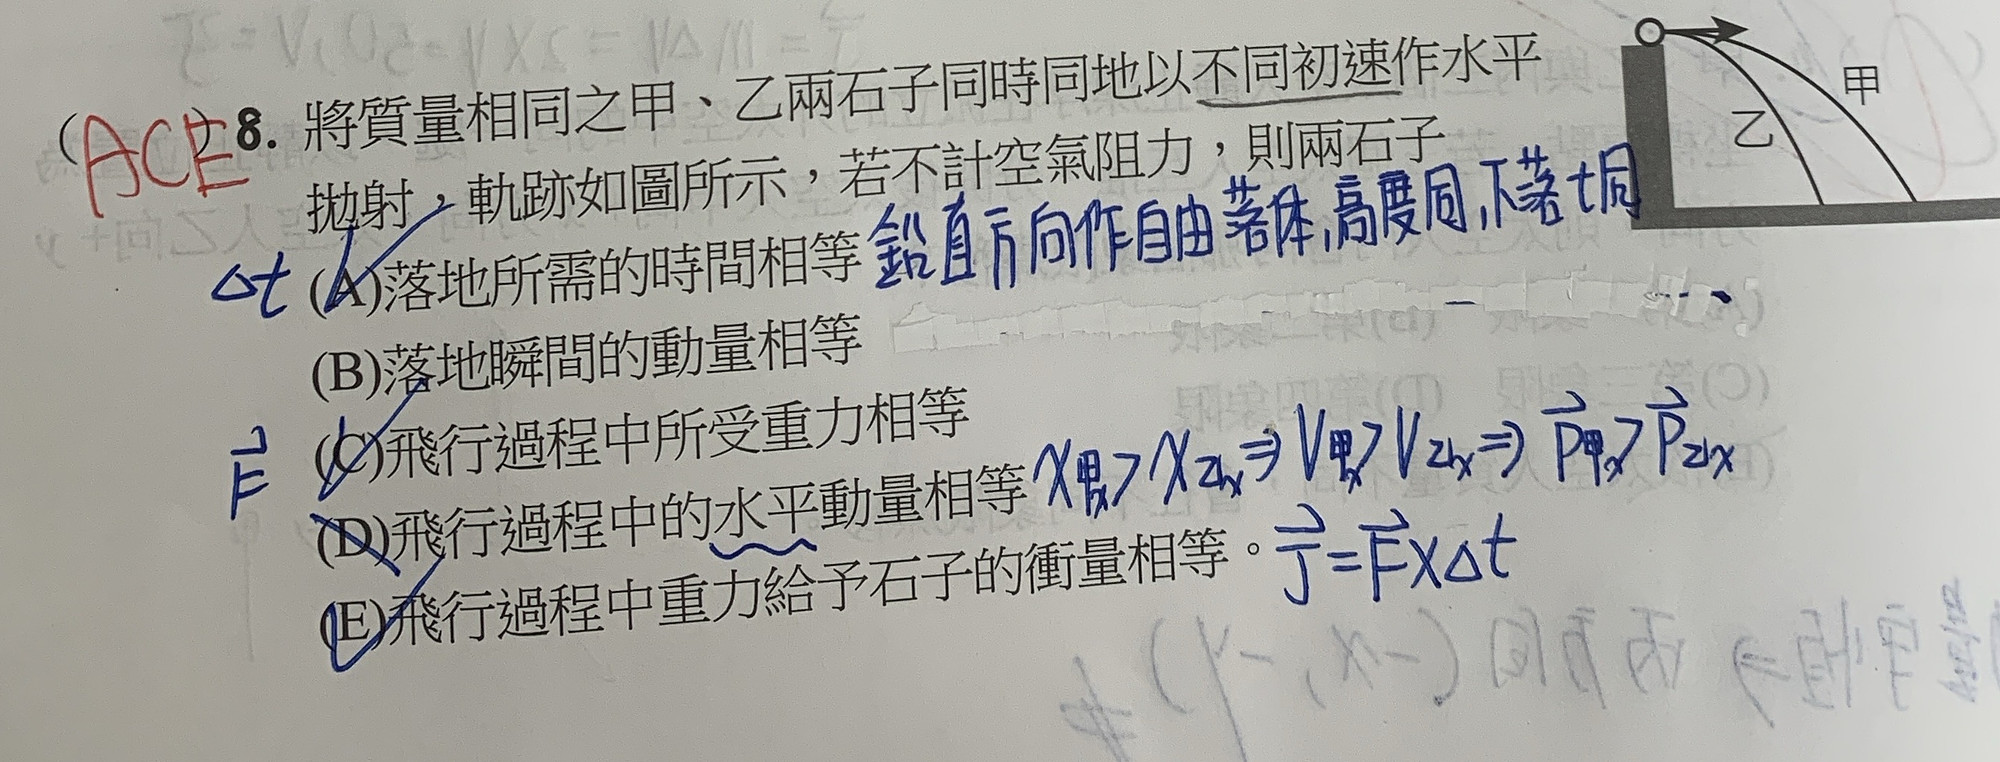 (ACE) 8. 將質量相同之甲、乙兩石子同時同地以不同初速作水平
拋射，軌跡如圖所示，若不計空氣阻力，則兩石子
甲
乙
Δt (A)落地所需的時間相等 鉛直方向作自由落体,高度同,下落t同
(B)落地瞬間的動量相等
F⃗ (C)飛行過程中所受重力相等
(D)飛行過程中的水平動量相等 X甲x > X乙x ⇒ V甲x > V乙x ⇒ P⃗甲x > P⃗乙x
(E)飛行過程中重力給予石子的衝量相等。 J⃗ = F⃗ × Δt